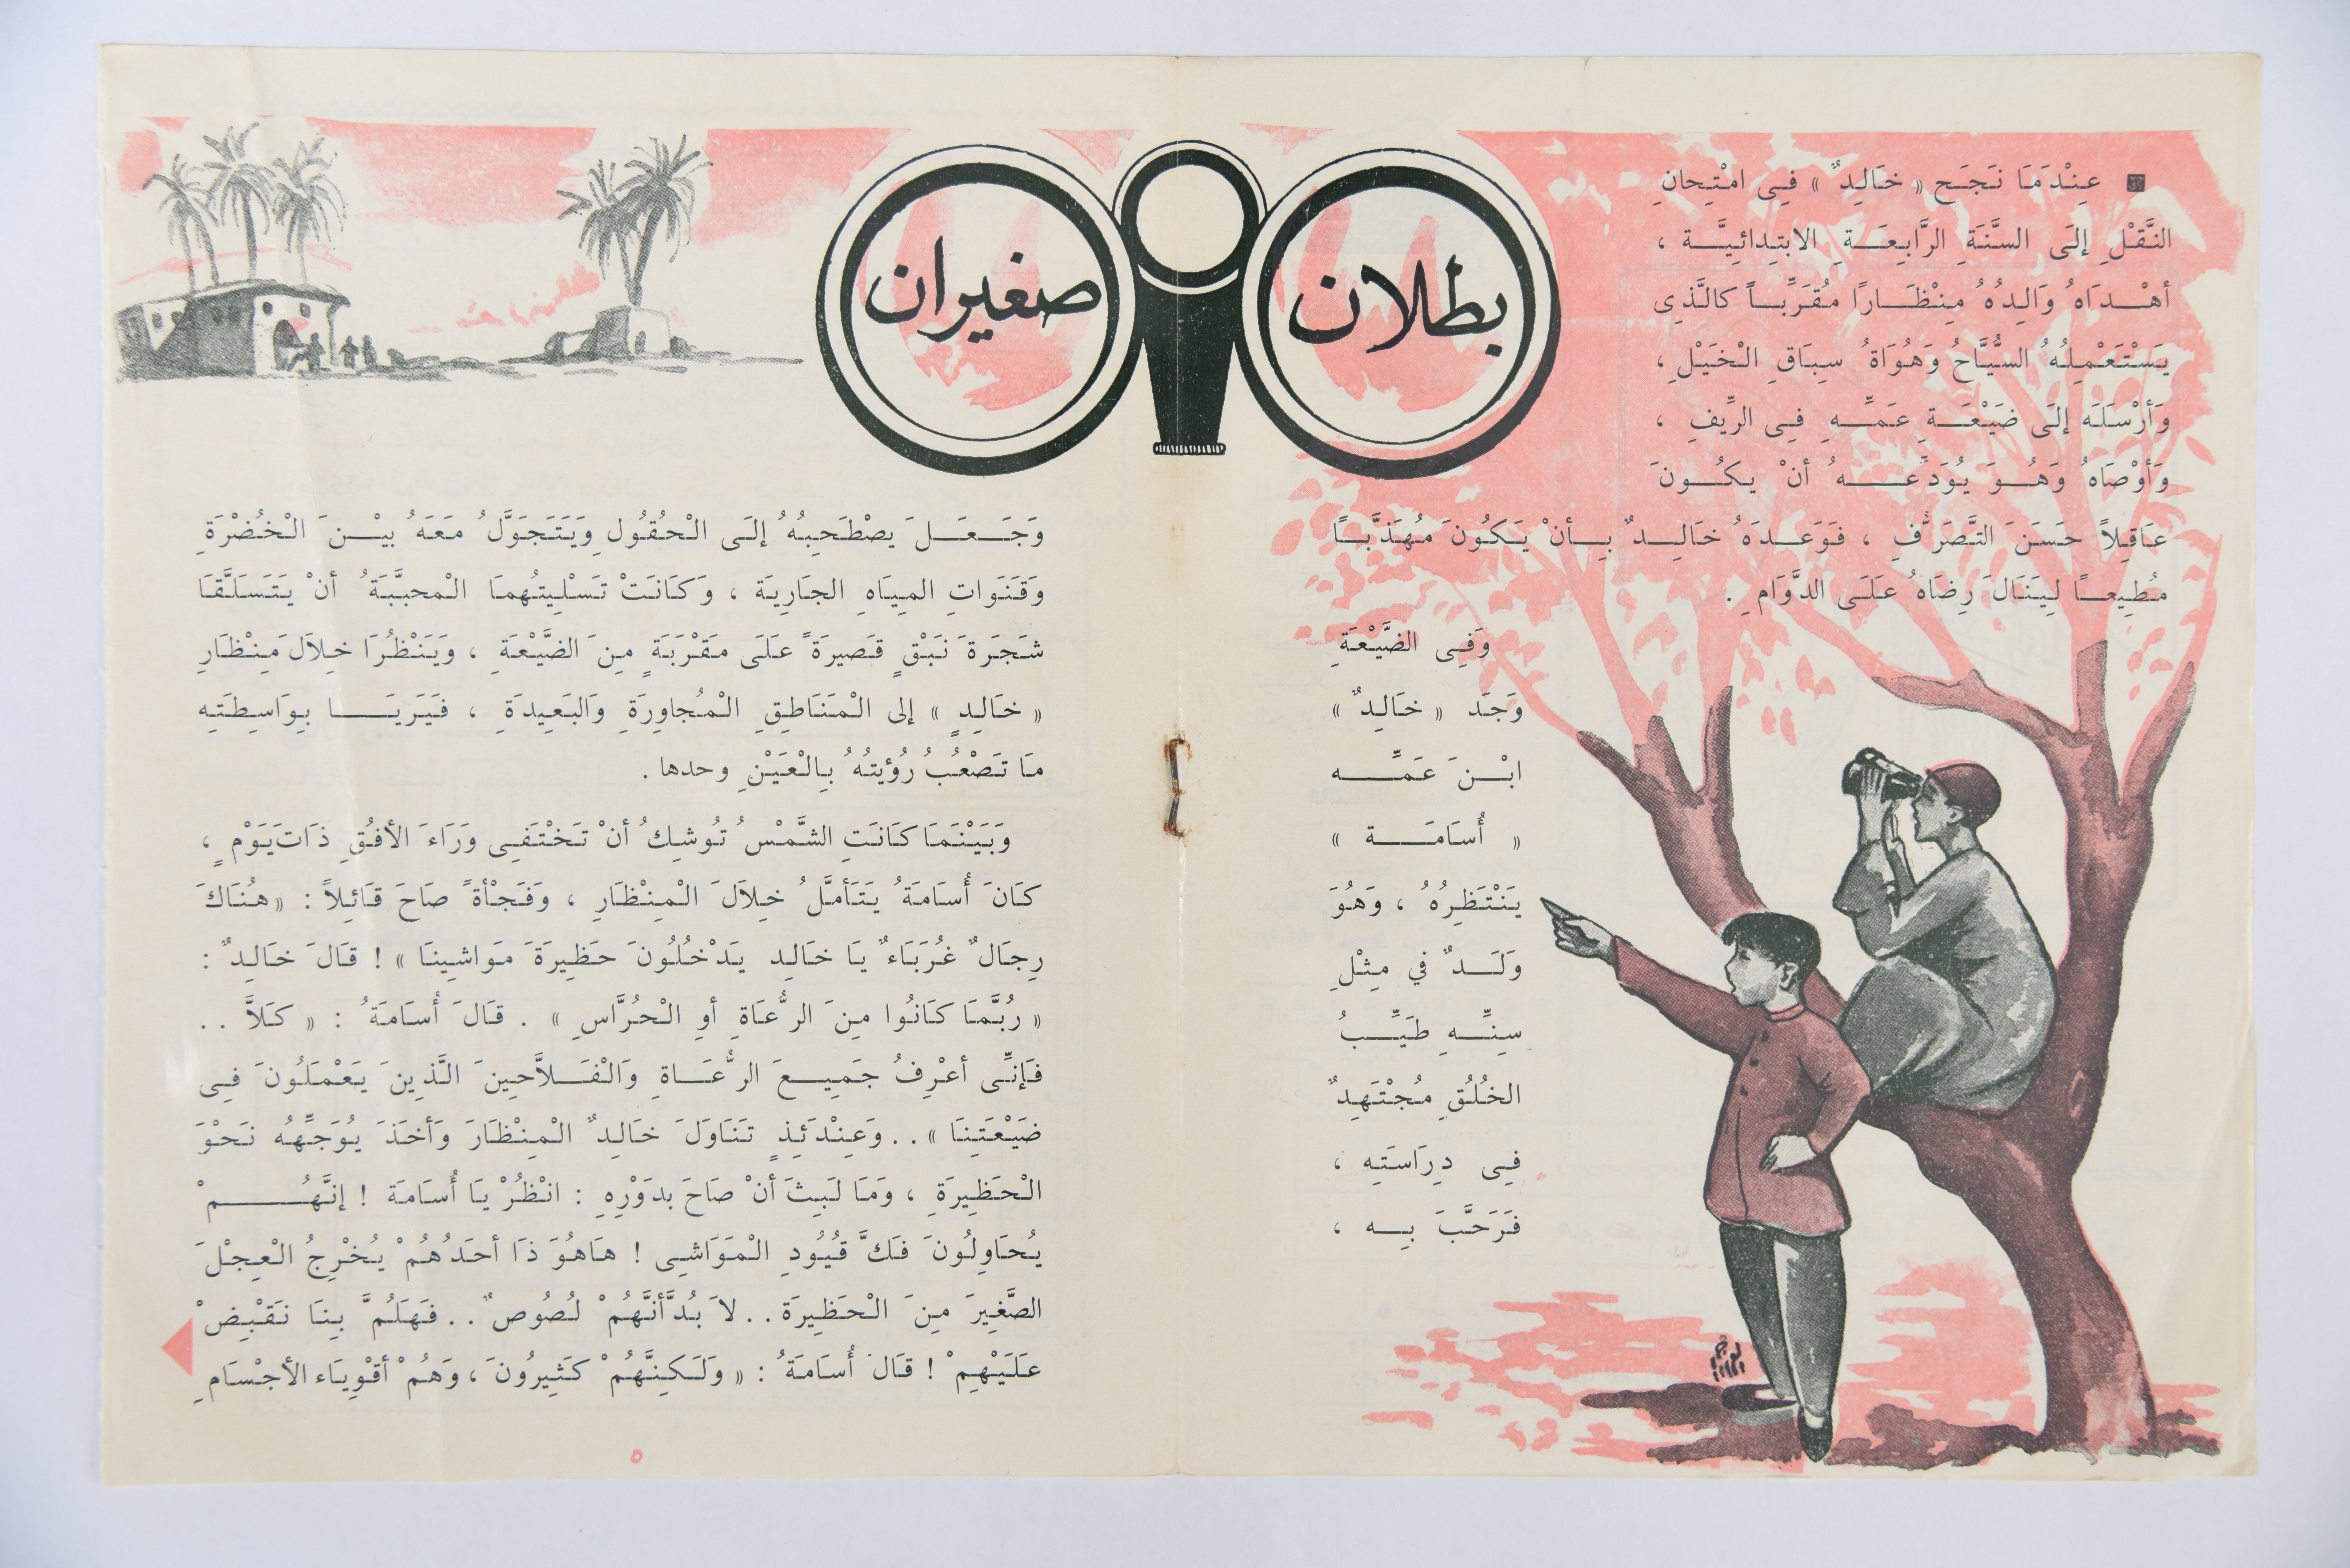 بطلان
صغيران
■ عِنْدَمَا نَجَحَ « خَالِدٌ » فِى امْتِحانِ
النَّقْلِ إلَى السَّنَةِ الرَّابِعَةِ الابتِدائِيَّة ،
أهْدَاهُ وَالِدُهُ مِنْظَارًا مُقَرِّبًا كالَّذِى
يَسْتَعْمِلُهُ السُّيَّاحُ وَهُوَاةُ سِبَاقِ الْخَيْلِ ،
وَأرْسَلَه إلَى ضَيْعَةِ عَمِّهِ فِى الرِّيفِ ،
وَأوْصَاهُ وَهُوَ يُوَدِّعُهُ أنْ يكُونَ
عَاقِلاً حَسَنَ التَّصَرُّفِ ، فَوَعَدَهُ خَالِدٌ بِأنْ يَكُونَ مُهَذَّبًا
مُطِيعًا لِيَنَالَ رِضَاهُ عَلَى الدَّوَامِ .
وَفِى الضَّيْعَةِ
وَجَدَ « خَالِدٌ »
ابْنَ عَمِّه
« أُسَامَة »
يَنْتَظِرُهُ ، وَهُوَ
وَلَدٌ في مِثْلِ
سِنِّهِ طَيِّبُ
الخُلُقِ مُجْتَهِدٌ
فِى دِرَاسَتِهِ ،
فَرَحَّبَ بِه ،
وَجَعَلَ يصْطَحِبُهُ إلَى الْحُقُولِ وَيَتَجَوَّلُ مَعَهُ بيْنَ الْخُضْرَةِ
وَقَنَوَاتِ المِيَاهِ الجَارِيَة ، وَكَانَتْ تَسْلِيتُهمَا الْمحبَّبَةُ أنْ يَتَسَلَّقَا
شَجَرَةَ نَبْقٍ قَصيرَةً عَلَى مَقْرَبَةٍ مِنَ الضَّيْعَةِ ، وَيَنْظُرَا خِلاَلَ مِنْظَارِ
« خَالِدٍ » إلى الْمَنَاطِقِ الْمُجاوِرَةِ وَالبَعِيدَةِ ، فَيَرَيَا بِوَاسِطَتِهِ
مَا تَصْعُبُ رُؤْيتُهُ بِالْعَيْنِ وحدها .
وَبَيْنَمَا كَانَتِ الشَّمْسُ تُوشِكُ أنْ تَخْتَفِى وَرَاءَ الأفُقِ ذَاتَ يَوْمٍ ،
كَانَ أُسَامَةُ يَتَأَمَّلُ خِلاَلَ الْمِنْظَارِ ، وَفَجْأةً صَاحَ قَائِلاً : « هُنَاكَ
رِجَالٌ غُرَبَاءٌ يَا خَالِد يَدْخُلُونَ حَظِيرَةَ مَوَاشِينَا » ! قَالَ خَالِدٌ :
« رُبَّمَا كَانُوا مِنَ الرُّعَاةِ أوِ الْحُرَّاسِ » . قَالَ أُسَامَةُ : « كَلاَّ . .
فَإنِّى أعْرِفُ جَمِيعَ الرُّعَاةِ وَالْفَلاَّحِينَ الَّذِينَ يَعْمَلُونَ فِى
ضَيْعَتِنَا » . . وَعِنْدَئِذٍ تَنَاوَلَ خَالِدٌ الْمِنْظَارَ وَأخَذَ يُوَجِّهُه نَحْوَ
الْحَظِيرَةِ ، وَمَا لَبِثَ أنْ صَاحَ بدَوْرِهِ : انْظُرْ يَا أُسَامَة ! إنَّهُمْ
يُحَاوِلُونَ فَكَّ قُيُودِ الْمَوَاشِى ! هَاهُوَ ذَا أحَدُهُمْ يُخْرِجُ الْعِجْلَ
الصَّغِيرَ مِنَ الْحَظِيرَة . . لاَ بُدَّ أنَّهُمْ لُصُوصٌ . . فَهَلُمَّ بِنَا نَقْبِضْ
عَلَيْهِمْ ! قَالَ أُسَامَةُ : « وَلَكِنَّهُمْ كَثِيرُونَ ، وَهُمْ أقْوِيَاء الأجْسَامِ
٥